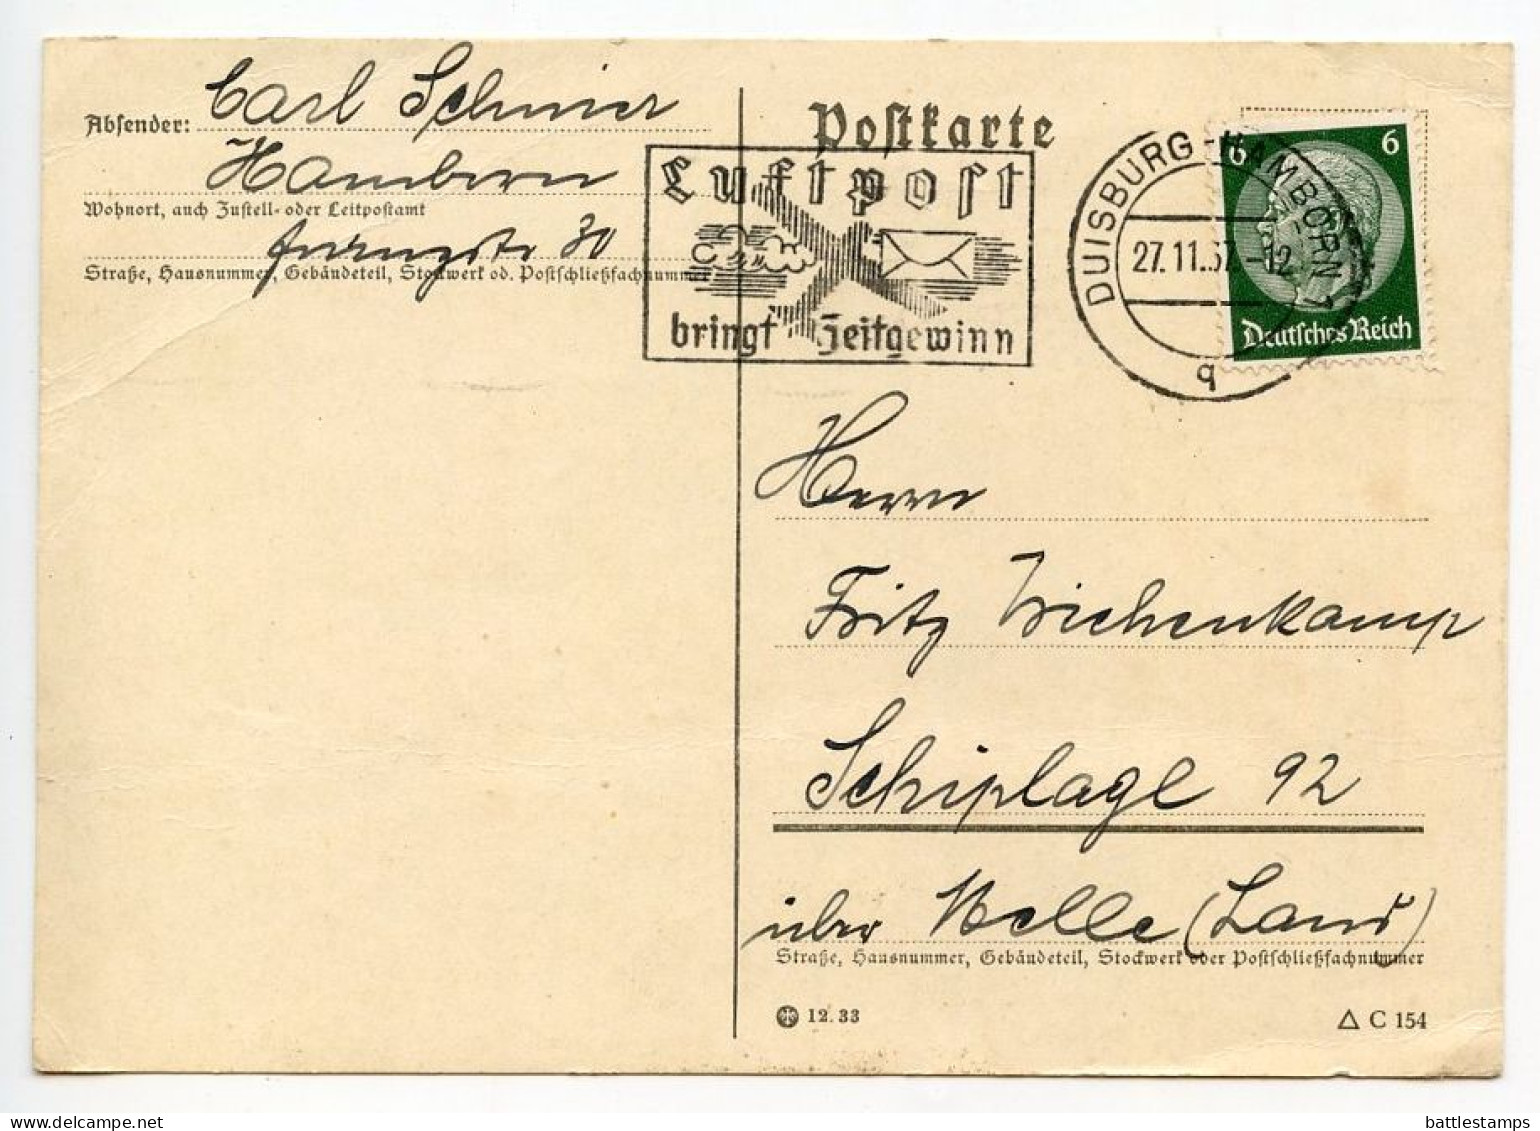 Absender: Carl Schmier
Hamborn
Wohnort, auch Zustell- oder Leitpostamt
30
Straße, Hausnummer, Gebäudeteil, Stockwerk od. Postschließfachnummer
Postkarte
Luftpost
bringt Zeitgewinn
DUISBURG-HAMBORN 1
27.11.37.-12
q
6 6
Deutsches Reich
Herrn
Fritz Wichenkamp
Schiplage 92
über Melle (Land)
Straße, Hausnummer, Gebäudeteil, Stockwerk oder Postschließfachnummer
12.33
△ C 154
battlestamps